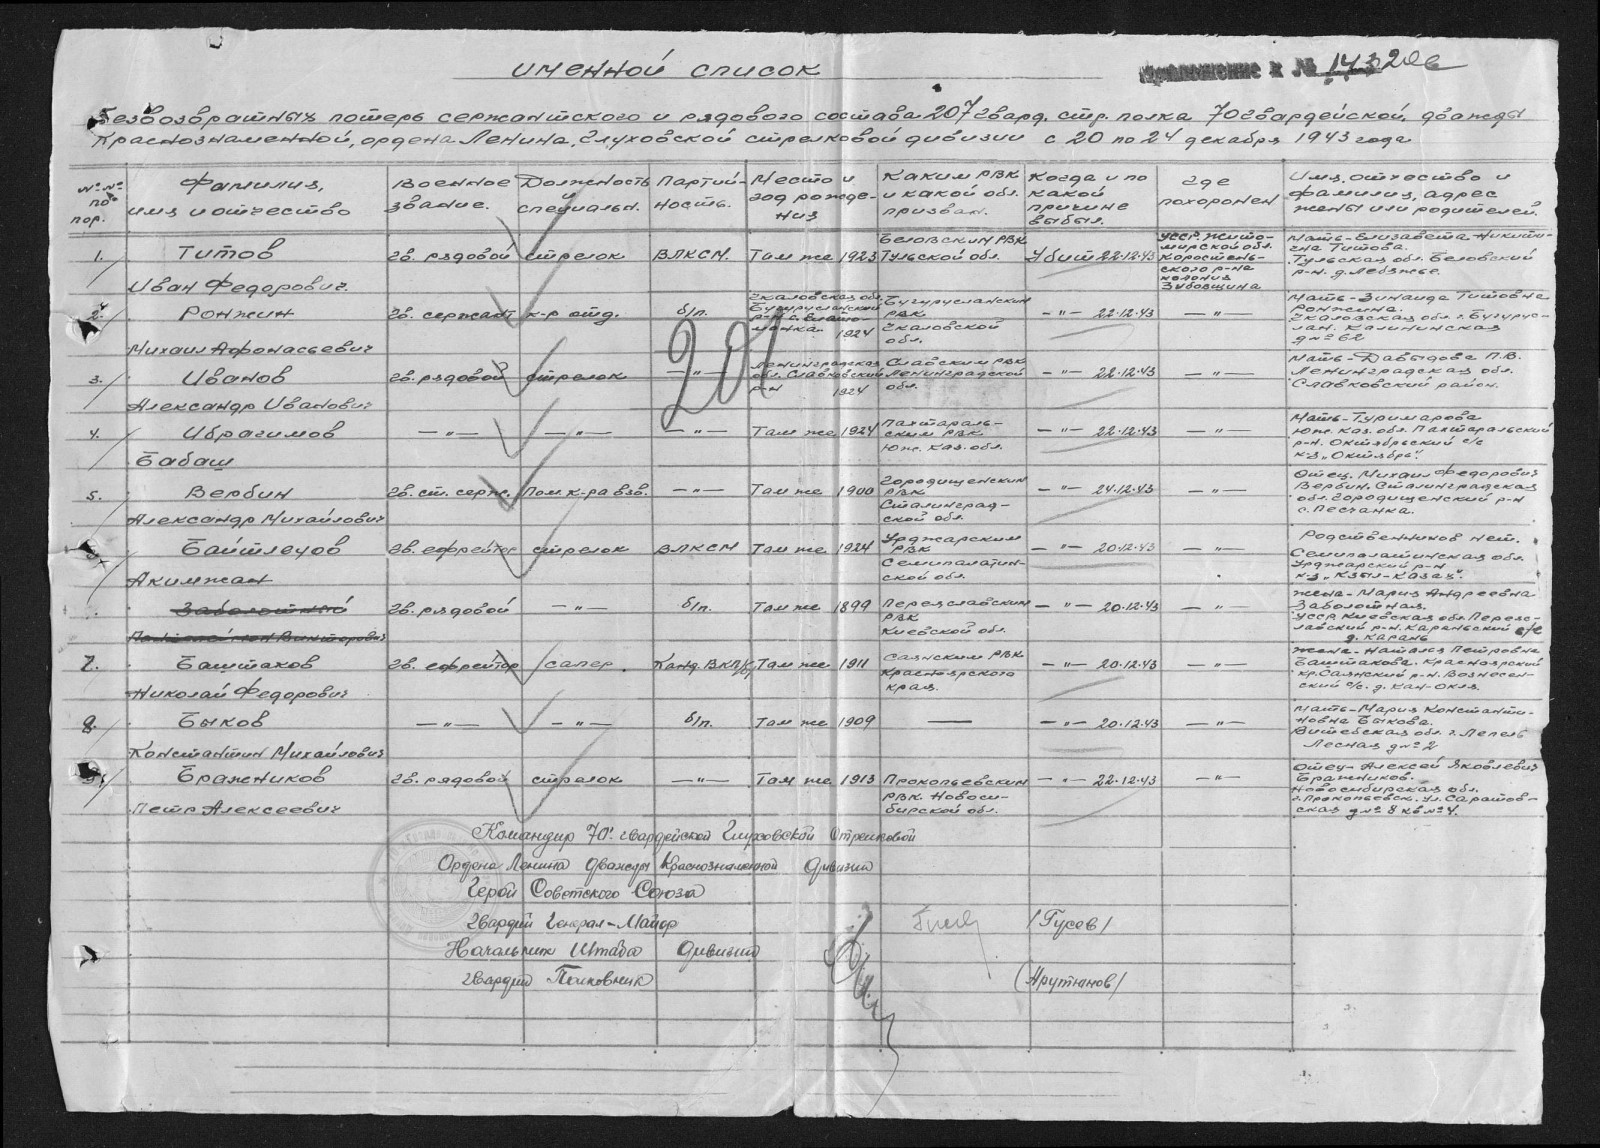 Именной список
Приложение к № 14320с
Безвозвратных потерь сержантского и рядового состава 207 гвард. стр. полка 70 гвардейской, дважды
Краснознаменной, ордена Ленина, Глуховской стрелковой дивизии с 20 по 24 декабря 1943 года
№ №
по
пор.
Фамилия,
имя и отчество
Военное
звание.
Должность
и
специальн.
Партий-
ность.
Место и
год рожде-
ния
Каким РВК
и какой обл.
призван.
Когда и по
какой
причине
выбыл.
где
похоронен
Имя, отчество и
фамилия, адрес
жены или родителей.
1.
Титов
Иван Федорович.
гв. рядовой
стрелок
ВЛКСМ.
Там же 1923
Беловским РВК
Тульской обл.
Убит 22.12.43
УССР. Жито-
мирской обл.
Коростень-
ского р-на
колония
Зубовщина
Мать - Елизавета Никити-
чна Титова.
Тульская обл. Беловский
р-н. д. Лебяжье.
2.
Ронжин
Михаил Афонасьевич
гв. сержант
к-р отд.
б/п.
Чкаловская обл.
Бугурусланский
1924
Бугурусланским
РВК
Чкаловской
обл.
— " — 22.12.43
— " —
Мать - Зинаида Титовна
Ронжина.
Чкаловская обл. г. Бугурус-
лан. Калининская
д № 62
201
3.
Иванов
Александр Иванович
гв. рядовой
стрелок
— " —
Ленинградская
обл. Славковский
р-н 1924
Славским РВК
Ленинградской
обл.
— " — 22.12.43
— " —
Мать - Давыдова П.В.
Ленинградская обл.
Славковский район.
4.
Ибрагимов
Бабаш
— " —
— " —
— " —
Там же 1924
Пахтараль-
ским РВК
Юж. Каз. обл.
— " — 22.12.43
— " —
Мать - Туримарова
Юж. Каз. обл. Пахтаральский
р-н. Октябрьский с/с
к-з "Октябрь".
5.
Вербин
Александр Михайлович
гв. ст. серж.
Пом. к-ра взв.
— " —
Там же 1900
Городищенским
РВК
Сталинград-
ской обл.
— " — 24.12.43
— " —
Отец. Михаил Федорович
Вербин. Сталинградская
обл. Городищенский р-н
с. Песчанка.
Байтлеуов
Акимжан
гв. ефрейтор
стрелок
ВЛКСМ
Там же 1924
Урджарским
РВК
Семипалатин-
ской обл.
— " — 20.12.43
— " —
Родственников нет.
Семипалатинская обл.
Урджарский р-н
к-з "Кзыл-Казах".
Заболотный
гв. рядовой
— " —
б/п.
Там же 1899
Переяславским
РВК
Киевской обл.
— " — 20.12.43
— " —
Жена - Мария Андреевна
Заболотная.
УССР. Киевская обл. Переяс-
лавский р-н. Караньский с/с
д. Карань
7.
Баштаков
Николай Федорович
гв. ефрейтор
сапер.
Канд. ВКП/б/
Там же 1911
Саянским РВК
Красноярского
края.
— " — 20.12.43
— " —
Жена - Наталья Петровна
Баштакова. Красноярский
кр. Саянский р-н. Вознесен-
ский с/с. д. Кан-Окля.
8.
Быков
Константин Михайлович
— " —
— " —
б/п.
Там же 1909
—
— " — 20.12.43
— " —
Мать - Мария Константи-
новна Быкова.
Витебская обл. г. Лепель
Лесная д № 2
9.
Бражников
Петр Алексеевич
гв. рядовой
стрелок
— " —
Там же 1913
Прокопьевским
РВК. Новоси-
бирской обл.
— " — 22.12.43
— " —
Отец - Алексей Яковлевич
Бражников.
Новосибирская обл.
г. Прокопьевск. ул. Саратов-
ская д № 8 кв № 4.
Командир 70й гвардейской Глуховской Стрелковой
Ордена Ленина дважды Краснознаменной дивизии
Герой Советского Союза
гвардии Генерал-Майор
/Гусев/
Начальник Штаба дивизии
гвардии Полковник
(Арутюнов/